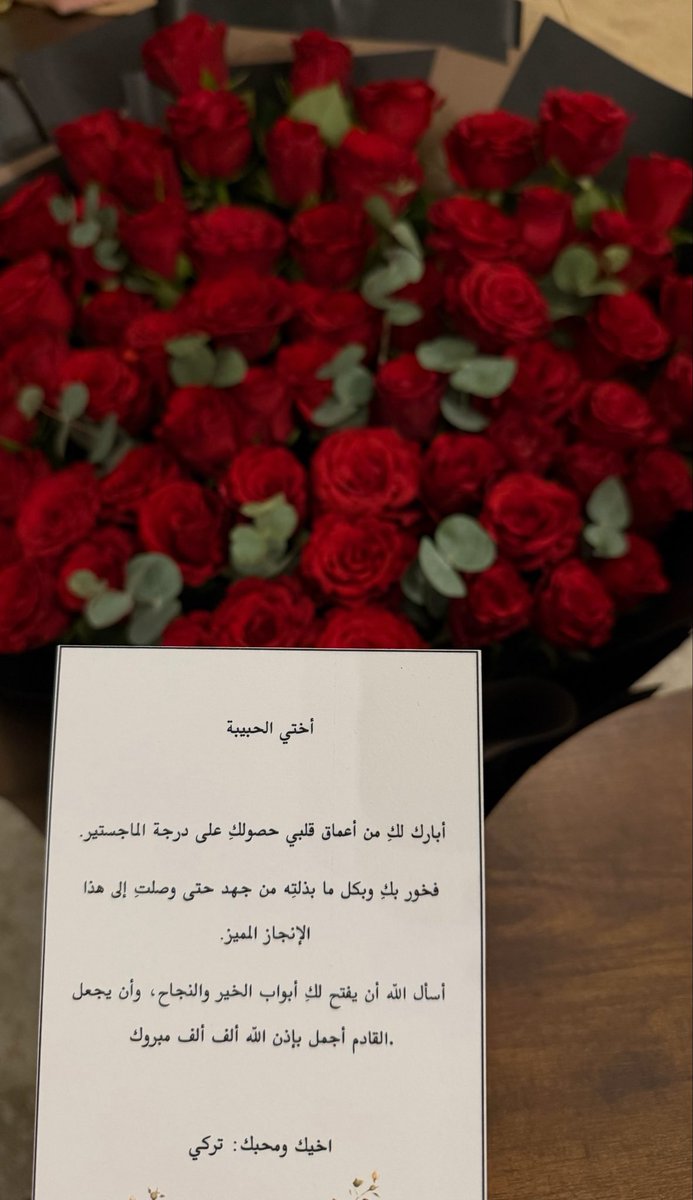 أختي الحبيبة
أبارك لكِ من أعماق قلبي حصولكِ على درجة الماجستير.
فخور بكِ وبكل ما بذلتِه من جهد حتى وصلتِ إلى هذا
الإنجاز المميز.
أسأل الله أن يفتح لكِ أبواب الخير والنجاح، وأن يجعل
.القادم أجمل بإذن الله ألف ألف مبروك
اخيك ومحبك: تركي